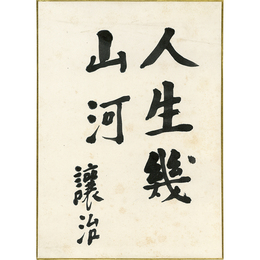 人生幾
山河
讓治